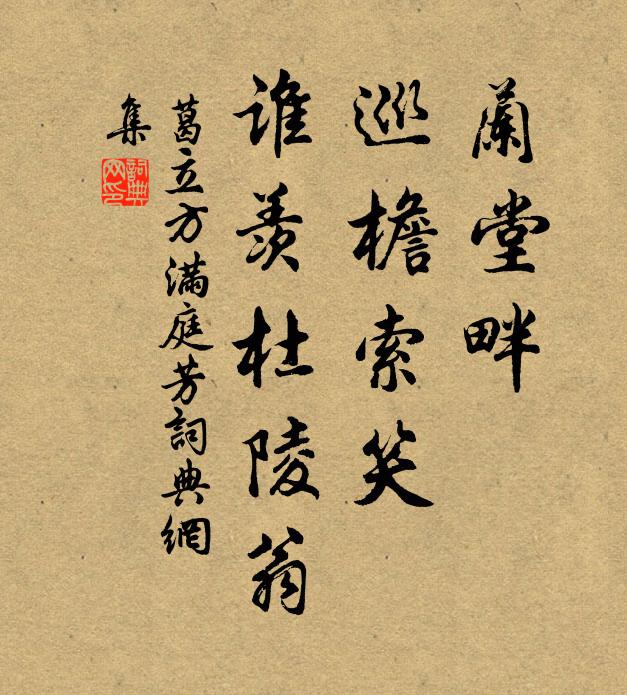 蘭堂畔
巡檐索笑
誰羨杜陵翁
葛立方滿庭芳詞典網
集
詞典
网印